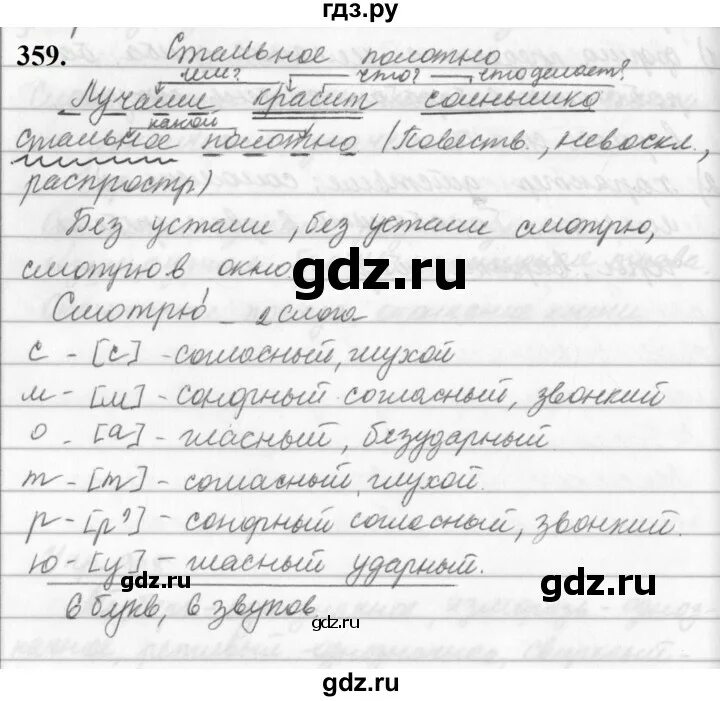 гдз.ру
359. Стальное полотно
чем? что? что делает?
Лучами красит солнышко
какой
стальное полотно (Повеств., невоскл.,
распростр)
Без устали, без устали смотрю,
смотрю в окно
gdz.ru
Смотрю́ - 2 слога
с - [с] - согласный, глухой
м - [м] - сонорный согласный, звонкий
о - [а] - гласный, безударный.
т - [т] - согласный, глухой.
р - [р'] - сонорный согласный, звонкий.
ю - [у] - гласный ударный.
6 букв, 6 звуков
gdz.ru
gdz.ru
gdz.ru